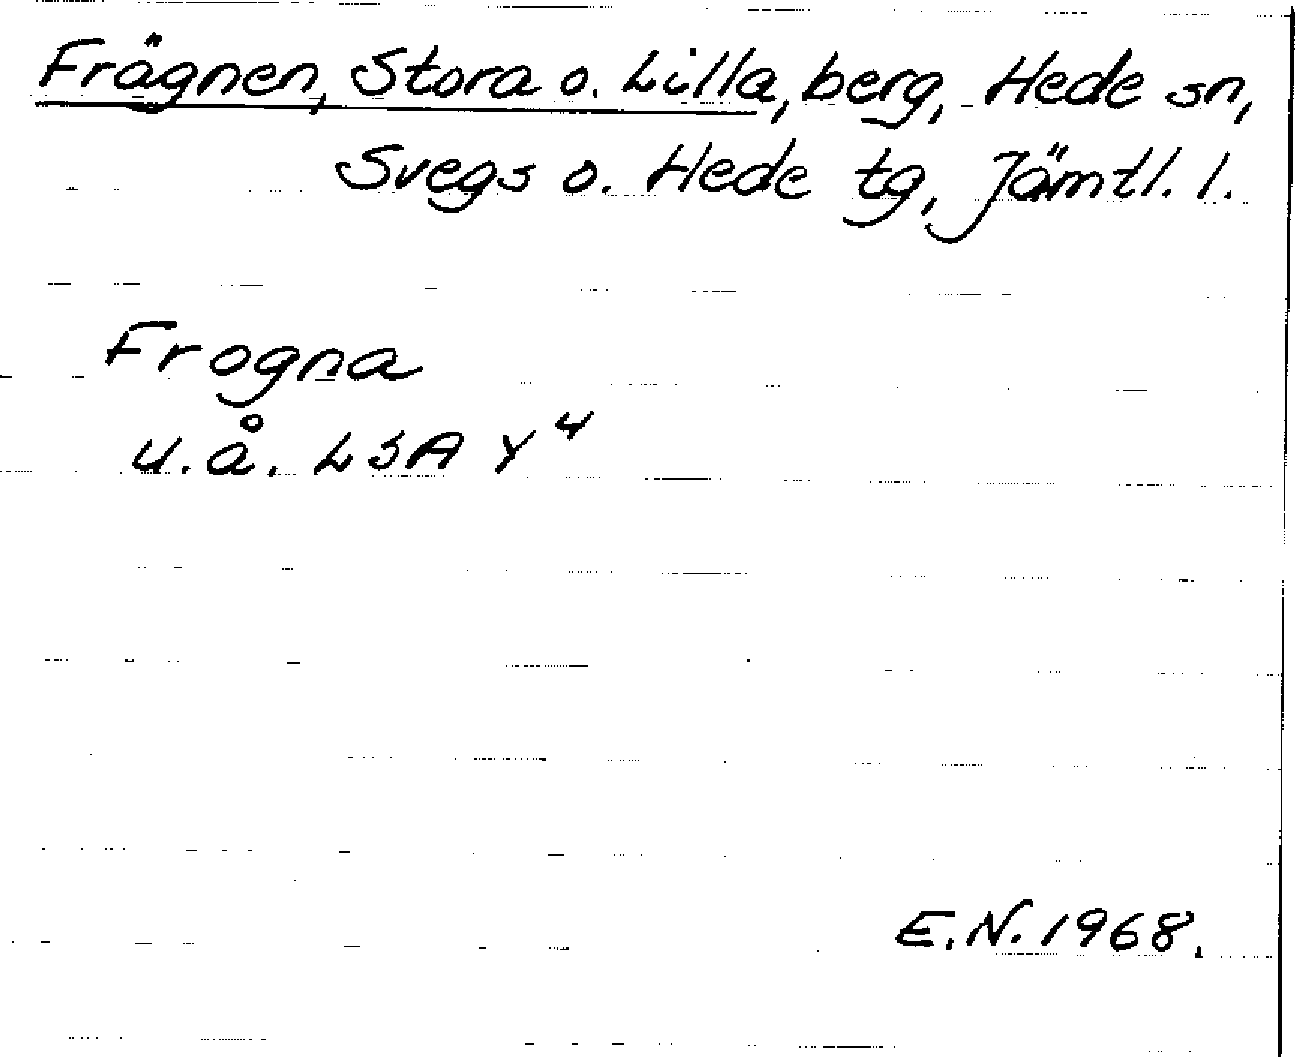 Frägnen, Stora o. Lilla, berg, Hede sn,
Svegs o. Hede tg, Jämtl. l.
Frogna
u.å. LSA Y4
E.N. 1968.